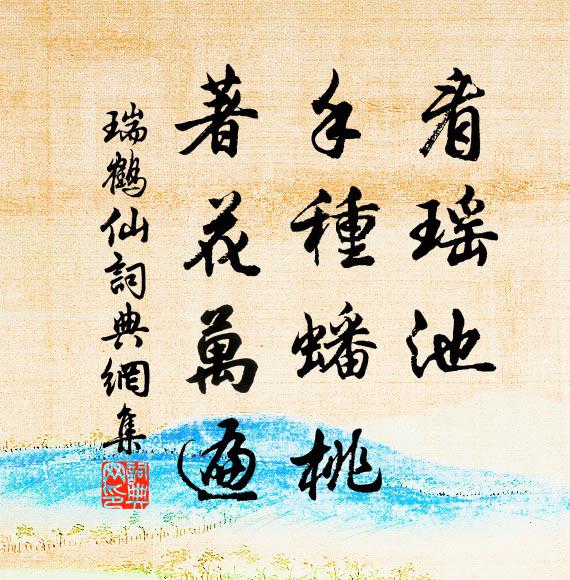 看瑶池
手種蟠桃
著花萬遍
瑞鶴仙詞典網集